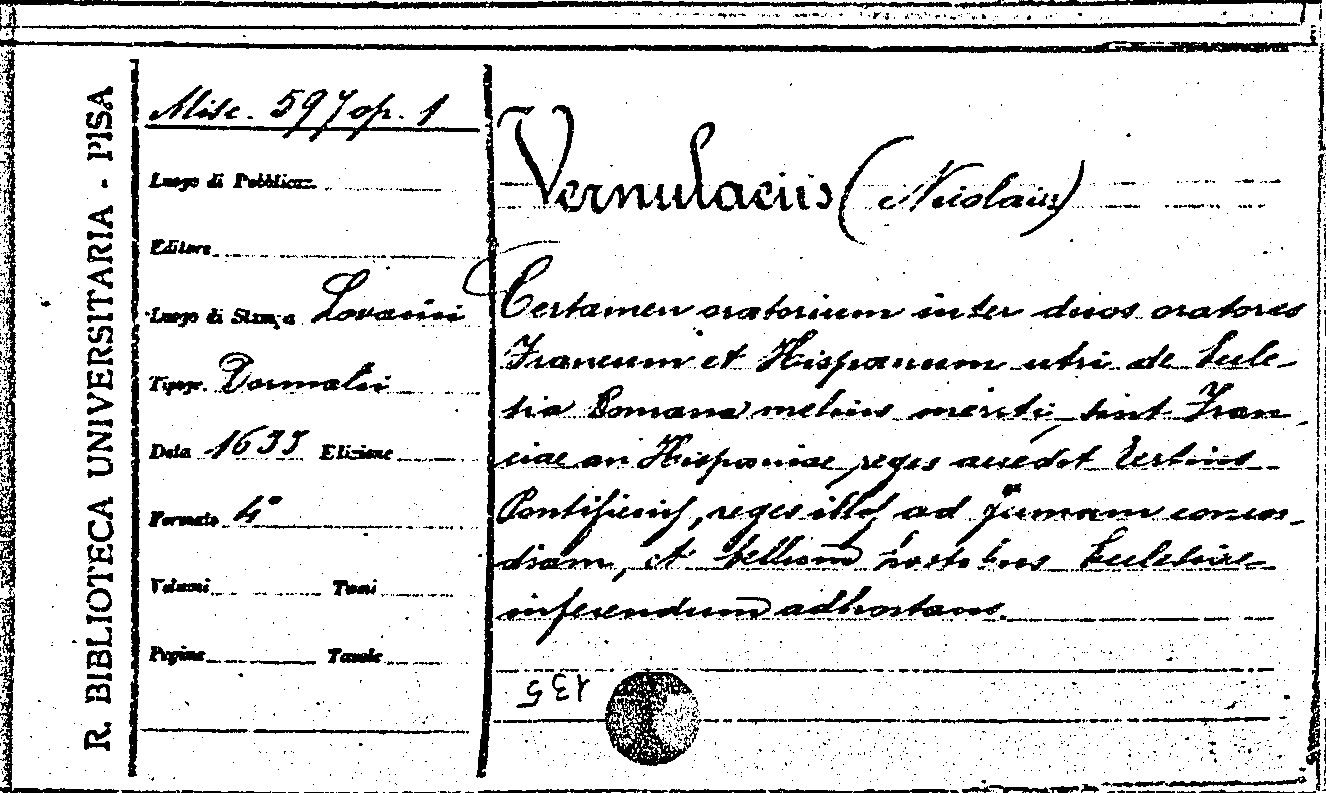 R. BIBLIOTECA UNIVERSITARIA - PISA
Misc. 597 op. 1
Luogo di Pubblicaz.
Editore
Luogo di Stampa Lovanii
Tipogr. Dormalii
Data 1633 Edizione
Formato 4°
Volumi Tomi
Pagine Tavole
Vernulaeus (Nicolaus)
Certamen oratorium inter duos oratores
Francum et Hispanum utri de Eccle-
sia Romana melius meriti sint Fran-
ciae an Hispaniae reges accedit Tertius
Pontificius, reges illos ad firmam concor-
diam, et bellum hostibus Ecclesiae
inferendum adhortans.
135